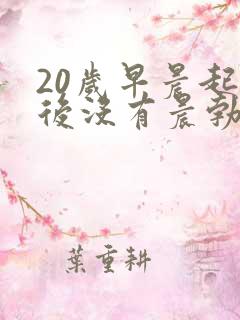 20歲早晨起
後沒有晨勃
葉重耕